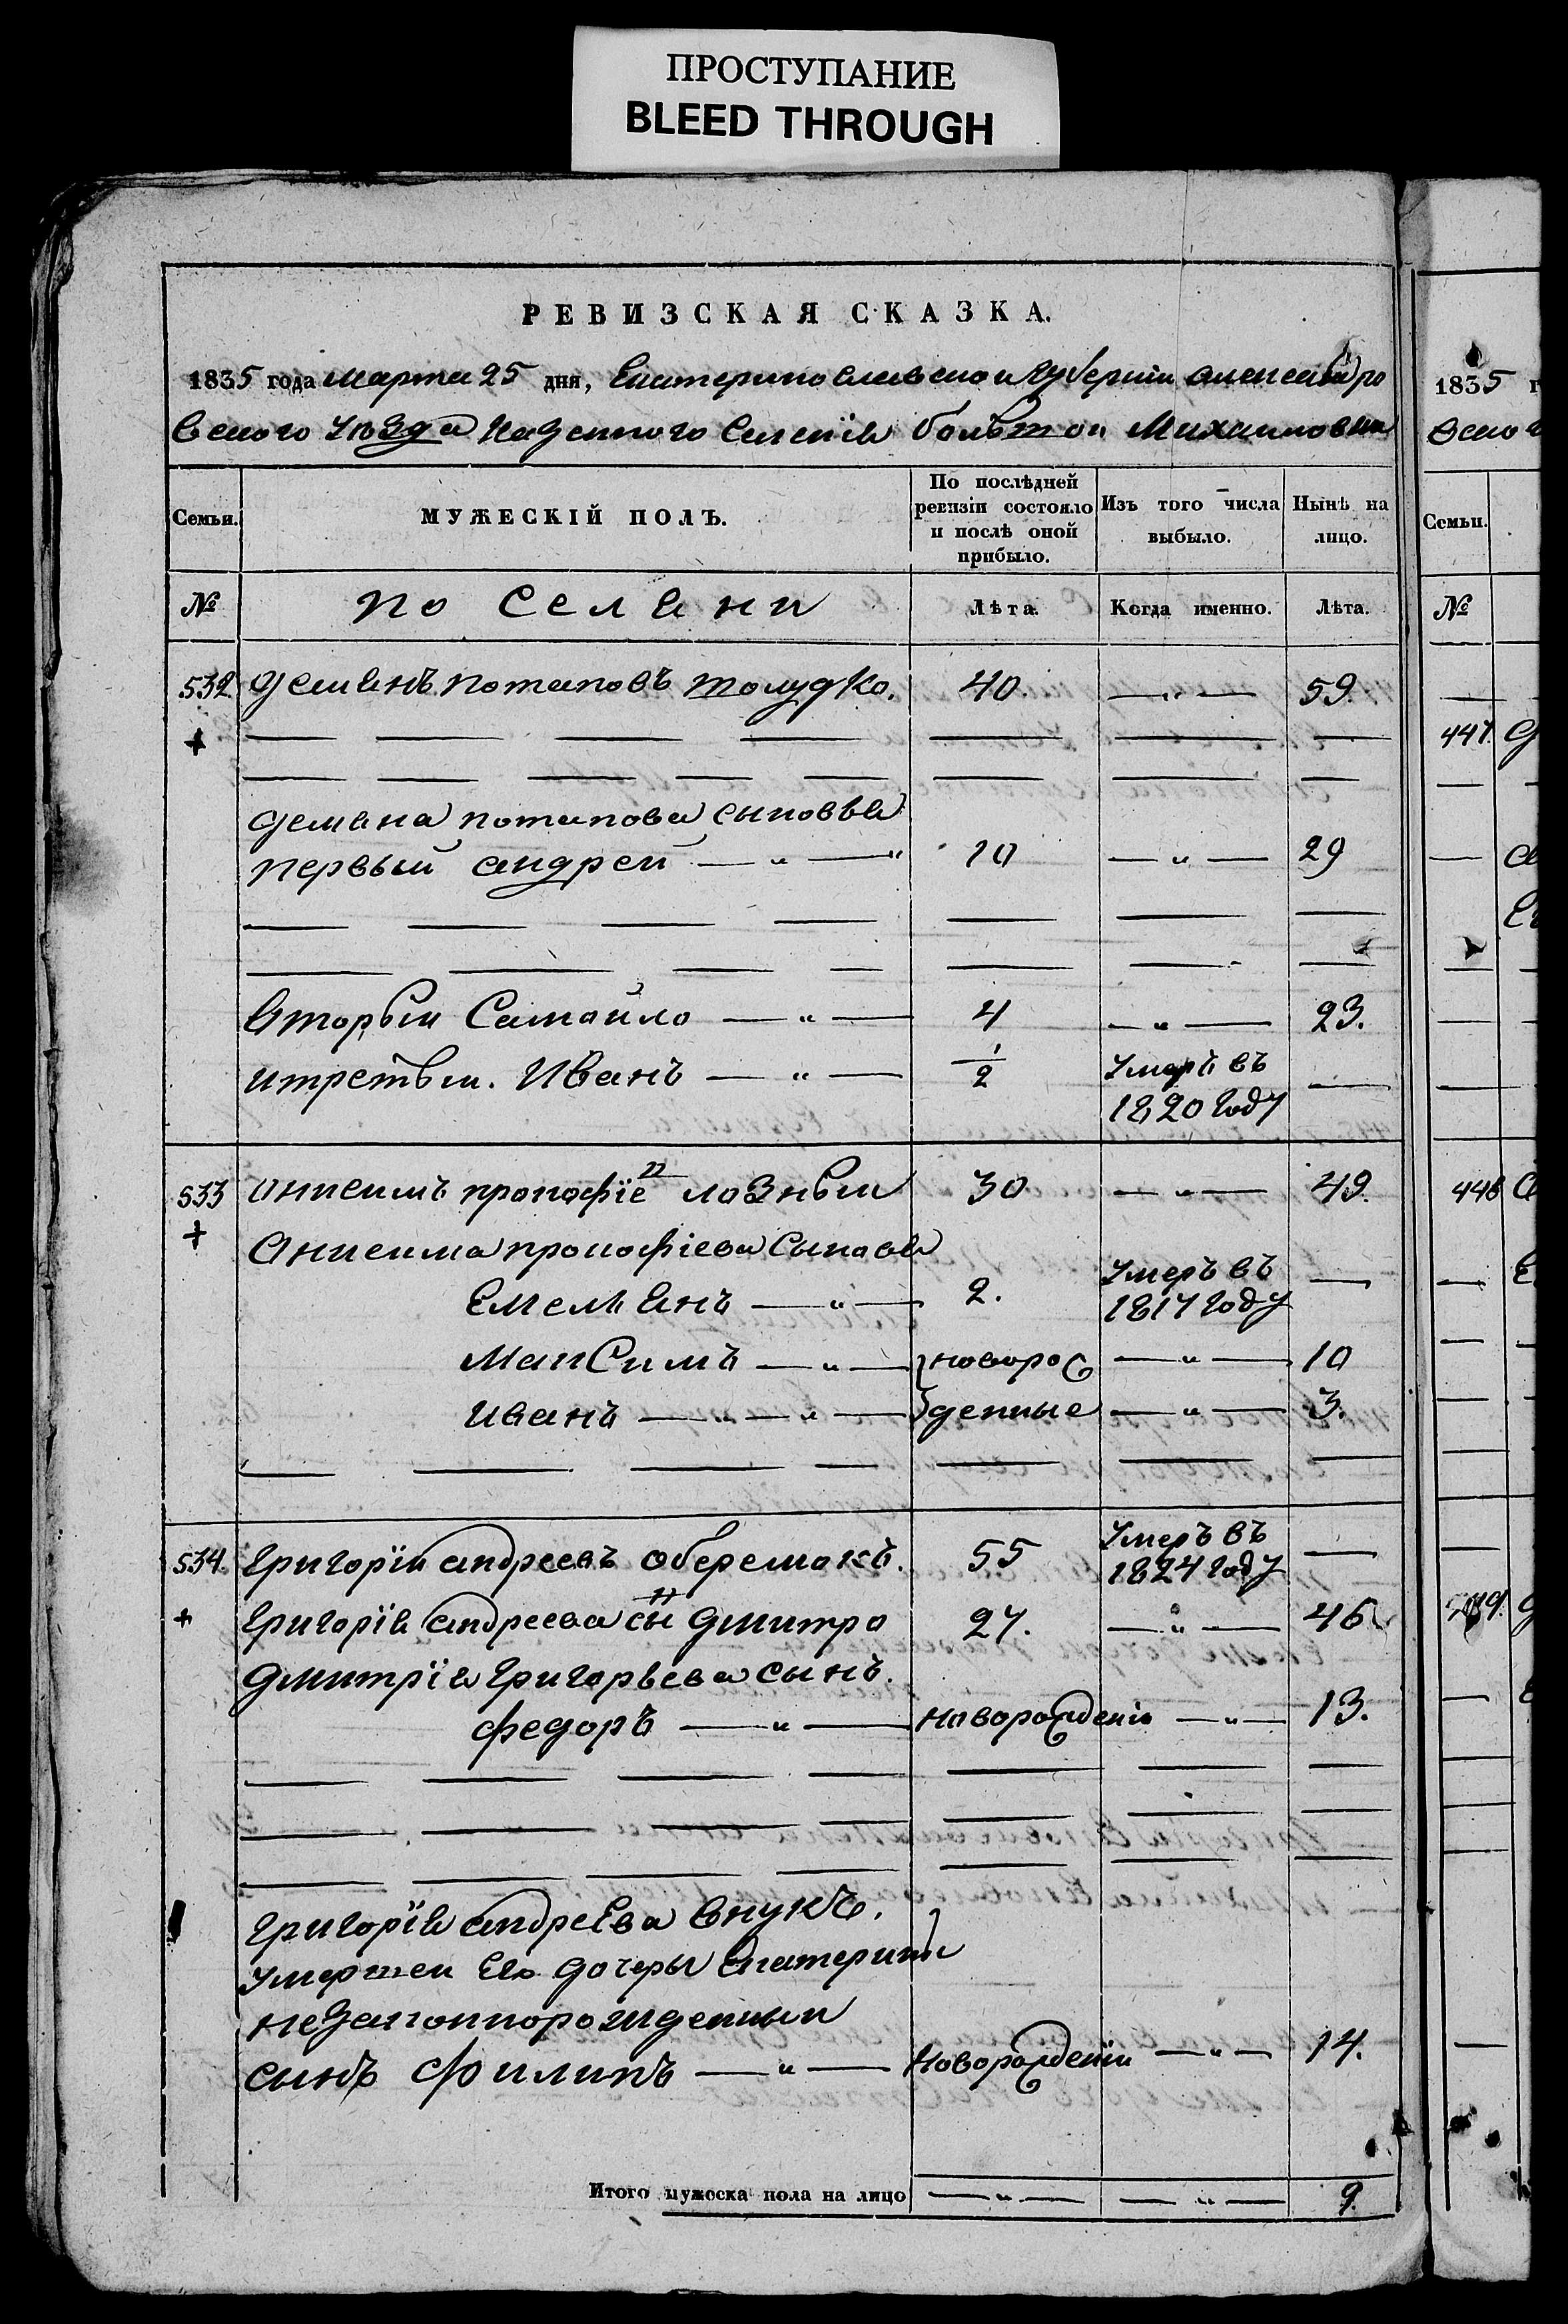 ПРОСТУПАНИЕ
BLEED THROUGH
РЕВИЗСКАЯ СКАЗКА.
1835 года марта 25 дня, Екатеринославской губерніи александро
вского уѣзда казенного селенія больтой Михаиловки
Семьи. МУЖЕСКІЙ ПОЛЪ. По послѣдней ревизіи состояло и послѣ оной прибыло. Изъ того числа выбыло. Нынѣ на лицо.
№ поселяни Лѣта. Когда именно. Лѣта.
532 демянъ потаповъ толудко. 40. — „ — 59.
+
демяна потапова сыновья
первый андрей — „ — „ 10 — „ — 29
вторый Самойло — „ — 4 — „ — 23.
итретьи. Иванъ — „ — 1/2 Умеръ въ 1820 году —
533 онисимъ прокофіевъ лозный 30 — „ — 49.
+
Онисима прокофіева сыновья
Емельянъ — „ — 2. Умеръ въ 1817 году —
МакСимъ — „ — новорож — „ — 10
Иванъ — „ — „ — денные — „ — 3.
534. Григорій андреевъ оберемокъ. 55 Умеръ въ 1824 году —
+ Григорія андреева сынъ дмитро 27. — „ — 46
дмитрія Григорьева сынъ.
федоръ — „ — новорожденій — „ — 13.
Григорія андреева внукъ.
умершей Его дочеры Екатерины
незаконнорожденный
сынъ Филипъ — „ — новорожденій — „ — 14.
Итого мужеска пола на лицо — „ — — „ — 9.
1835 г
вского
Семьи.
№
447.
448